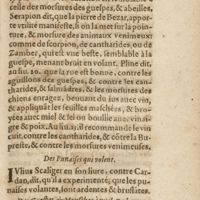 celle des morsures des guespes, & abeilles,
Serapion dit, que la pierre de Bezar, appor-
te vtilité manifeste, si on la met sur la poin-
ture, & morsure des animaux venimeux:
comme de scorpion, de cantharides, ou de
Zambet, qui est vne beste, semblable à la
guespe, menant bruit en volant. Pline dit,
au liu. 20. que la rue est bonne, contre les
aguillons des guespes, & contre les can-
tharides, & salmádres, & les morsures des
chiens enragez, beuuant du ius auec vin,
& appliquāt les feuilles machées, & bro-
yées auec miel & sel ou bouillie auec vinai-
gre & poix. Au liu. 23. il recommāde le vin
cuit, contre les cantharides, & côtre la Bu-
preste, & contre les morsures venimeuses.
Des Punaises qui volent.
IVlius Scaliger en son liure, contre Car-
dan, dit, qu'il a experimenté, que les pu-
naises volantes, sont ardentes & bruslātes.